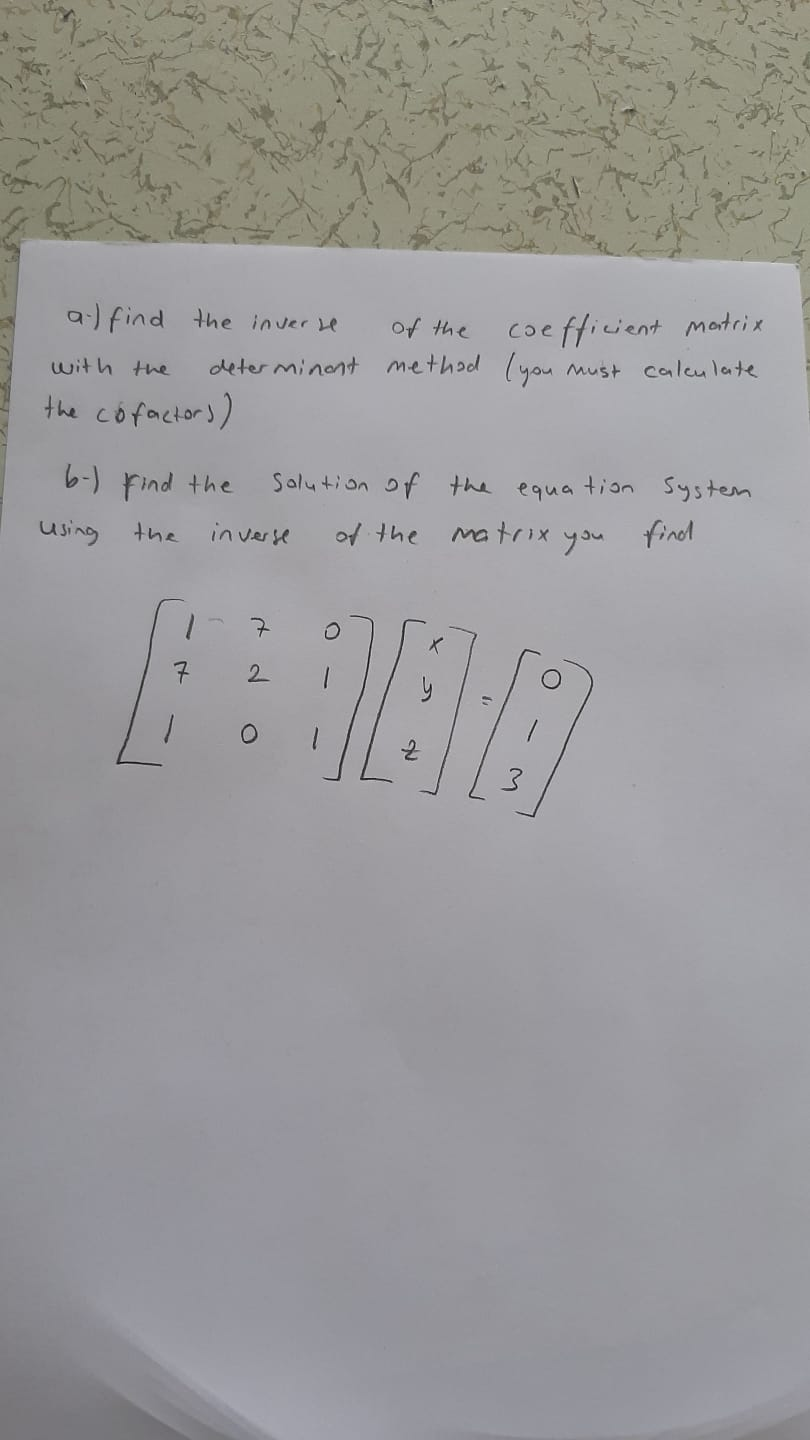 a-) find the inverse of the coefficient matrix
with the determinant method (you must calculate
the cofactors)
b-) Find the solution of the equation system
using the inverse of the matrix you find
[1 7 0] [x] [0]
[7 2 1] [y] = [1]
[1 0 1] [z] [3]